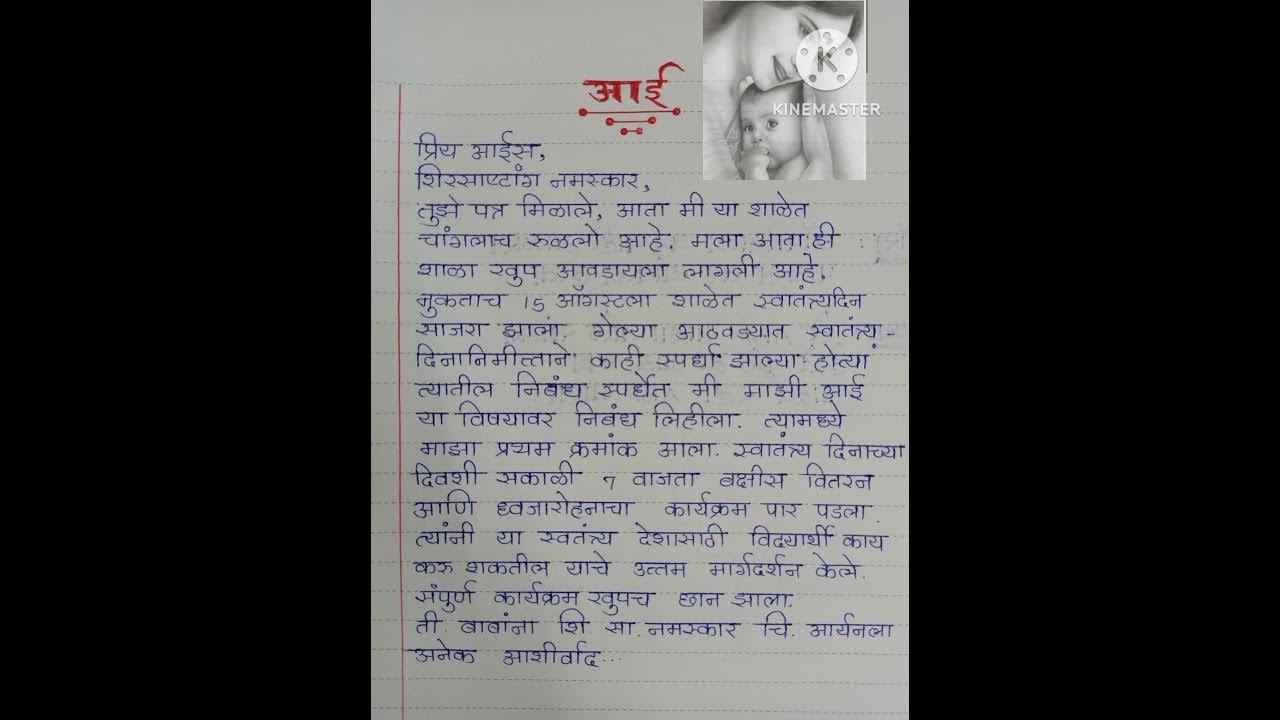 आई
KINEMASTER
प्रिय आईस,
शिरसाष्टांग नमस्कार,
तुझे पत्र मिळाले, आता मी या शाळेत
चांगलाच रुळलो आहे. मला आता ही
शाळा खुप आवडायला लागली आहे.
नुकताच 15 ऑगस्टला शाळेत स्वातंत्र्यदिन
साजरा झाला. गेल्या आठवड्यात स्वातंत्र्य -
दिनानिमीत्ताने काही स्पर्धा झाल्या होत्या
त्यातील निबंध स्पर्धेत मी माझी आई
या विषयावर निबंध लिहीला. त्यामध्ये
माझा प्रथम क्रमांक आला. स्वातंत्र्य दिनाच्या
दिवशी सकाळी 7 वाजता बक्षीस वितरन
आणि ध्वजारोहनाचा कार्यक्रम पार पडला.
त्यांनी या स्वतंत्र्य देशासाठी विदयार्थी काय
करु शकतील याचे उत्तम मार्गदर्शन केले.
संपुर्ण कार्यक्रम खुपच छान झाला.
ती. बाबांना शि. सा. नमस्कार चि. आर्यनला
अनेक आशीर्वाद...